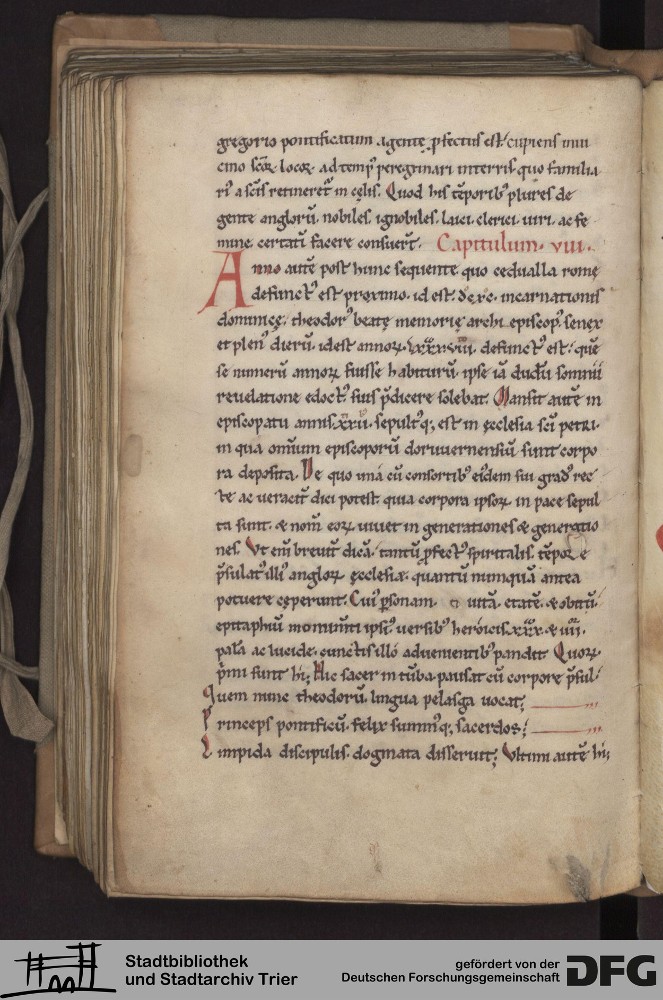 gregorio pontificatum agente ꝓfectus est cupiens inui
cino scõꝝ locoꝝ ad tempꝰ peregrinari in terris quo familia
riꝰ a scīs retineret᷑ in cęlis. Quod his tēporibꝰ plures de
gente angloꝝ. nobiles. ignobiles. laici. clerici. uiri. ac fe
minę certatī facere consuer̄t. Capitulum. viii.
Anno autē post hunc sequente quo cedualla romę
defunctꝰ est proximo. id est. dcxc. incarnationis
dominicę. theodorꝰ beatę memorię archi episcopꝰ. senex
et plenꝰ dierū. id est annoꝝ. lxxxviii. defunctꝰ est. quē
se numerū annoꝝ fuisse habiturū. ipse iā dudū somnii
reuelatione edoctꝰ suis p̄dicere solebat. Mansit autē in
episcopatu annis. xxii. sepultꝰq; est in ęcclesia scī petri.
in qua omīum episcoporū doruuernensiū sunt corpo
ra deposita. De quo una cū consortibꝰ eiꝰdem sui gradꝰ rec
te ac ueracit᷑ dici potest. quia corpora ipsoꝝ in pace sepul
ta sunt. & nom̄ eoꝝ uiuet in generationes & generatio
nes. Vt enī breuit᷑ dicā. tantū ꝓfectꝰ spiritalis. tēpore
p̄sulatꝰ illiꝰ angloꝝ ęcclesiæ. quantū numquā antea
potuere cęperunt. Cuiꝰ ꝑsonam uitā. etatē. & obitū.
epitaphiū monumti ipsiꝰ. uersibꝰ heroicis. xxx. & iiii.
palā ac lucide. cunctis illo aduenientibꝰ pandit. Quoꝝ
p̄mi sunt hi; Hic sacer in tūba pausat cū corpore p̄sul.
quem nunc theodorū. lingua pelasga uocat;
Princeps pontificū. felix summꝰq; sacerdos;
Limpida discipulis. dogmata disseruit; Vltimi autē hi;
Stadtbibliothek
und Stadtarchiv Trier
gefördert von der
Deutschen Forschungsgemeinschaft
DFG